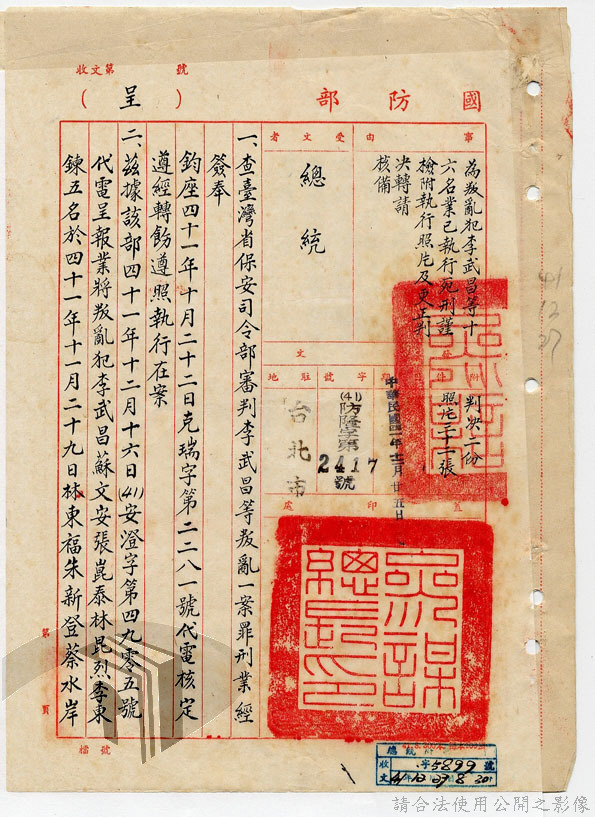 國防部
(呈)
收文第 號
事由
為叛亂犯李武昌等十
六名業已執行死刑謹
檢附執行照片及更正判
決轉請
核備
受文者
總統
附件
判決二份
照片三十二張
中華民國四十一年十二月廿五日
字號
(41)防隆字第2417號
駐地
台北市
一、查臺灣省保安司令部審判李武昌等叛亂一案罪刑業經
簽奉
鈞座四十一年十月二十二日克瑞字第二二八一號代電核定
遵經轉飭遵照執行在案
二、茲據該部四十一年十二月十六日(41)安澄字第四九零五號
代電呈報業將叛亂犯李武昌蘇文安張崑泰林昆烈李東
鍊五名於四十一年十一月二十九日林東福朱新登蔡水岸
第 頁
檔號
參謀總長印
收文 字5899號
41 12 29 8 30
41
12
27
請合法使用公開之影像